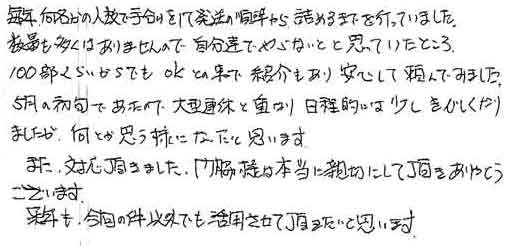 毎年、何名かの人数で手分けをして発送の順準から詰めるまでを行っていました。
数量も多くはありませんので自分達でやらないとと思っていたところ、
100部くらいからでも OKとの事で紹介もあり安心して頼んでみました。
5月の初旬であったので、大型連休と重なり日程的には少しきびしくなり
ましたが、何とか思う様になったと思います
また、対応頂きました、門脇様は本当に親切にして頂きありがとう
ございます。
来年も、今回の件以外でも活用させて頂きたいと思います。